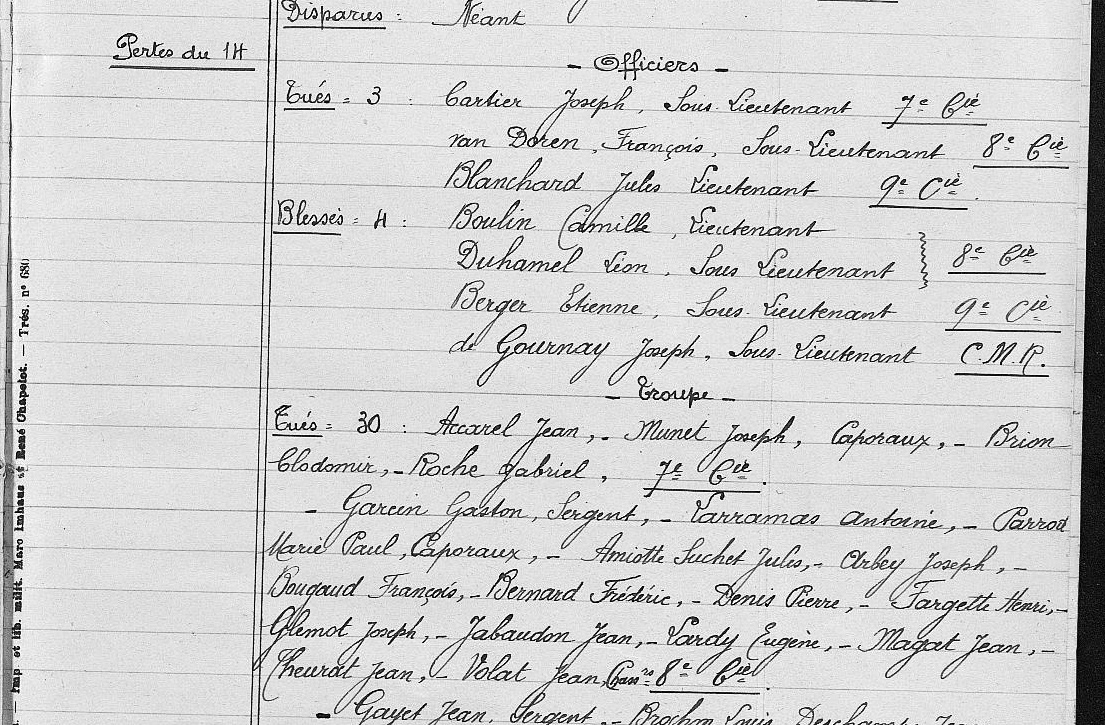 Disparus : Néant
Pertes du 14
- Officiers -
Tués = 3 : Cartier Joseph, Sous-Lieutenant 7e Cie
van Doren, François, Sous-Lieutenant 8e Cie
Blanchard Jules Lieutenant 9e Cie.
Blessés = 4 : Boulin Camille, Lieutenant
Duhamel Léon, Sous Lieutenant } 8e Cie
Berger Etienne, Sous-Lieutenant 9e Cie
de Gournay Joseph, Sous-Lieutenant C.M.R.
- Troupe -
Tués = 30 : Accarel Jean, - Munet Joseph, Caporaux, - Brion
Clodomir, - Roche Gabriel, 7e Cie.
- Garcin Gaston, Sergent, - Larramas Antoine, - Parrod
Marie Paul, Caporaux, - Amiotte Suchet Jules, - Arbey Joseph, -
Bougaud François, - Bernard Frédéric, - Denis Pierre, - Fargette Henri, -
Glemot Joseph, - Jabaudon Jean, - Lardy Eugène, - Magat Jean, -
Theurat Jean, - Volat Jean, Chasrs 8e Cie.
- Gayet Jean, Sergent, - Louis Deschamps
Imp et lib. milit. Marc Imhaus et René Chapelot. — Trés. n° 680